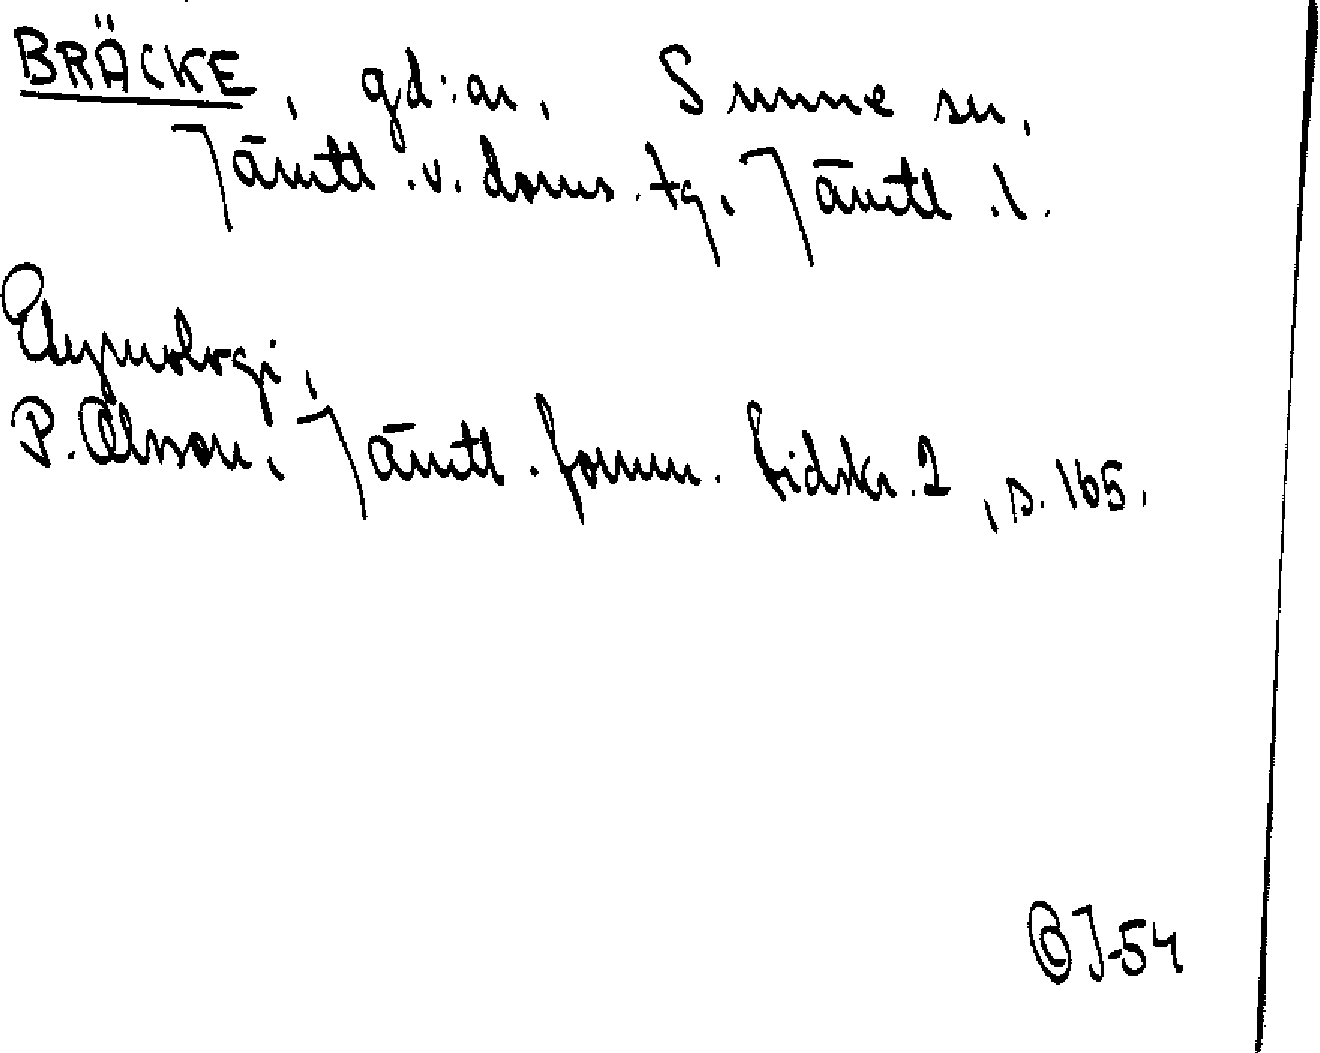 BRÄCKE, gd:ar, Sunne sn,
Jämtl.v. doms. tg, Jämtl.l.
Etymologi,
P. Olsson, Jämtl. fornm. tidskr. 1, s. 165.
J-54